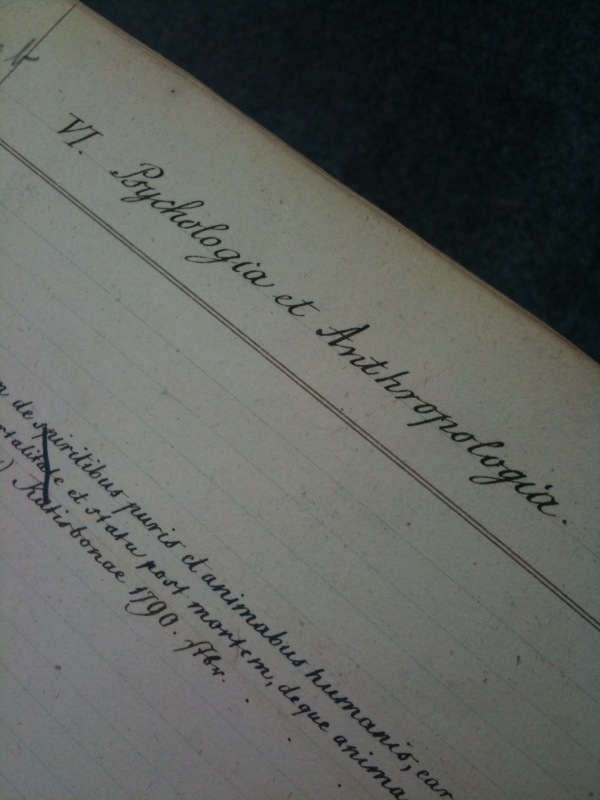 VI. Psychologia et Anthropologia.
de spiritibus puris et animabus humanis, ear
rtalitate et statu post mortem, deque anima
) Ratisbonae 1790. ftbr.